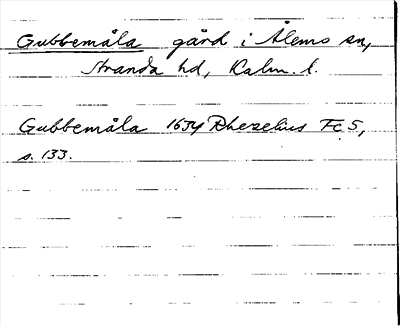 Gubbemåla gård i Ålems sn,
Stranda hd, Kalm. l.
Gubbemåla 1634 Rhezelius Fc 5,
s. 133.